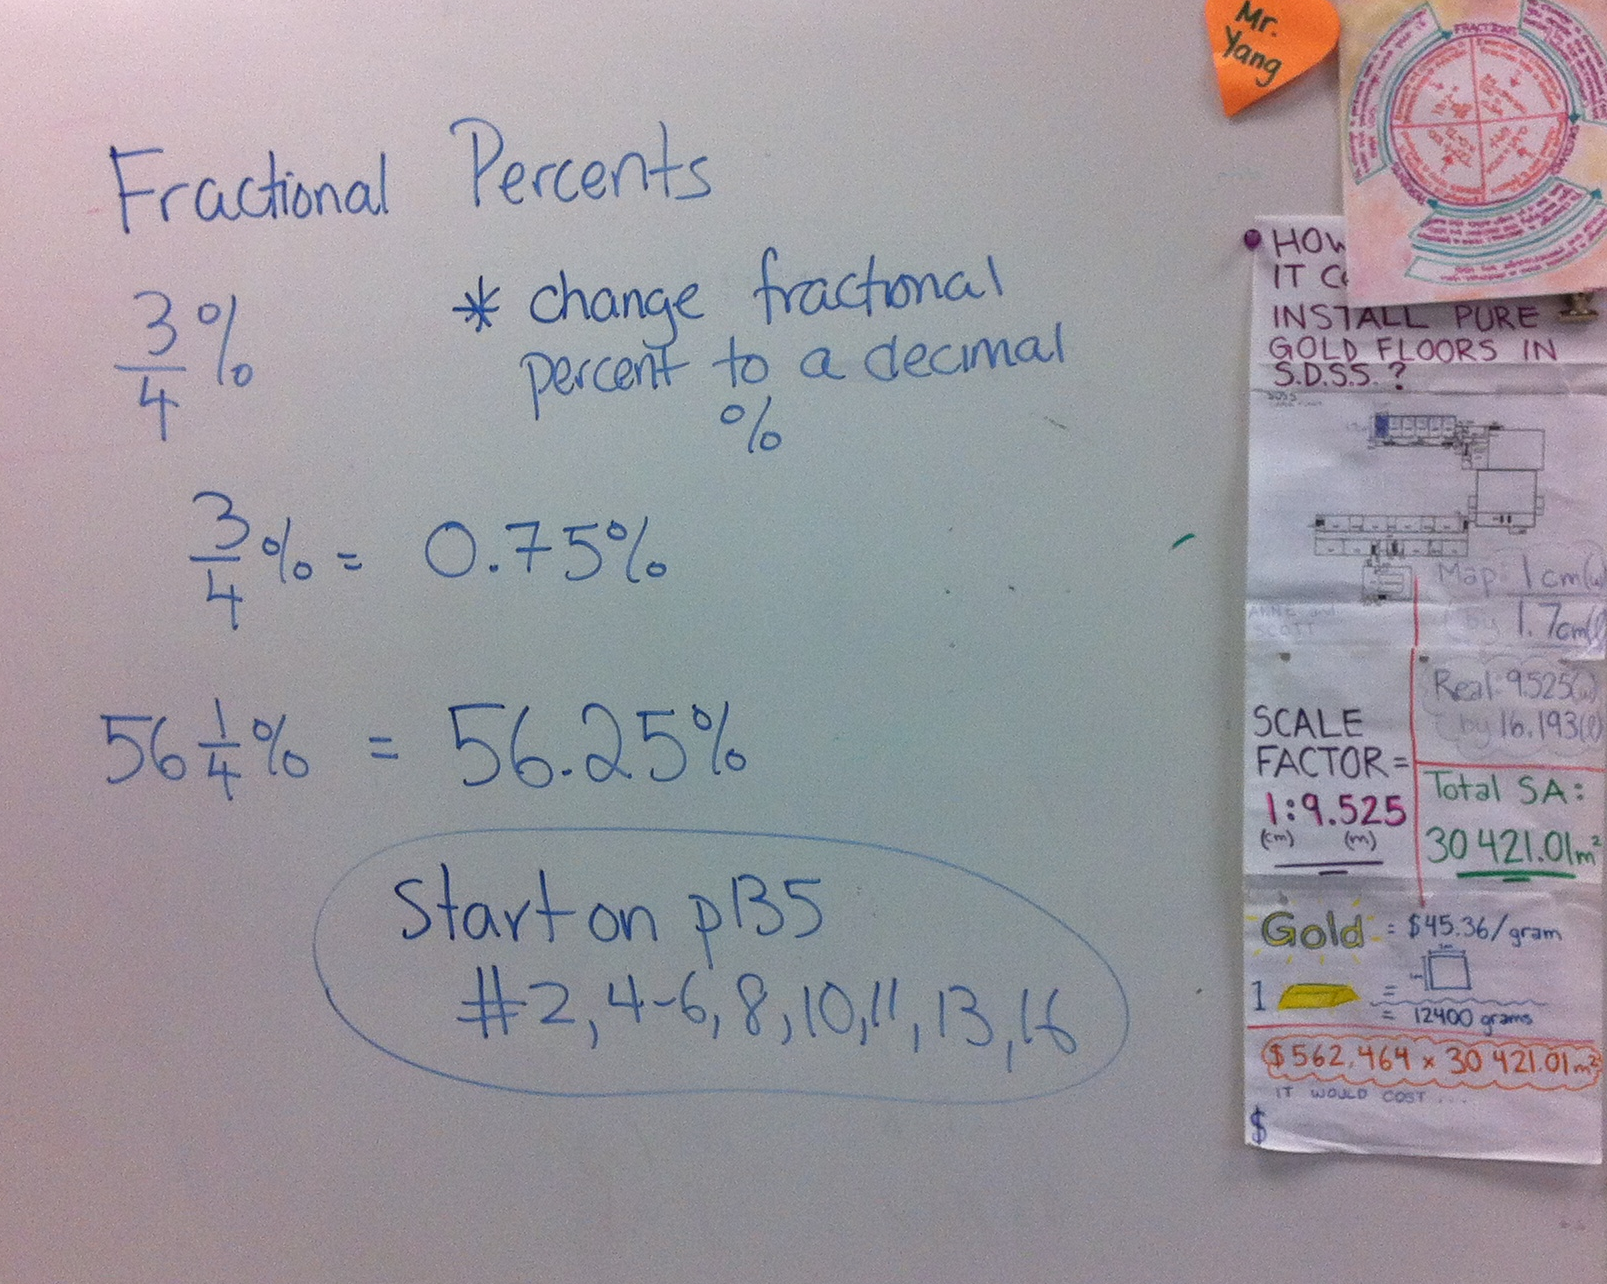 Fractional Percents
3/4 %
* change fractional
percent to a decimal
%
3/4 % = 0.75%
56 1/4 % = 56.25%
Start on p135
#2, 4-6, 8, 10, 11, 13, 16
Mr.
Yang
FRACTIONS
HOW
IT CO
INSTALL PURE
GOLD FLOORS IN
S.D.S.S. ?
Map: 1cm(w)
by 1.7cm(l)
ANNE and
SCOTT
Real: 9.525(w)
by 16.193(l)
SCALE
FACTOR =
1:9.525
(cm) (m)
Total SA:
30 421.01m²
Gold = $45.36/gram
1 =
= 12400 grams
$562,464 x 30 421.01m²
IT WOULD COST ...
$